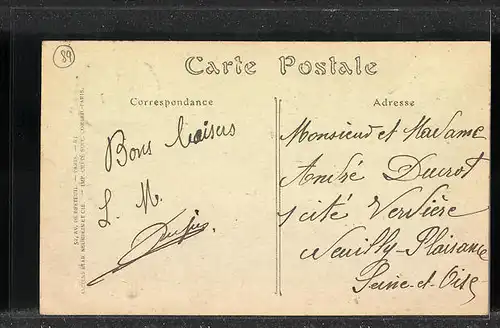 89
Carte Postale
Correspondance
Adresse
Bons baisers
L. M.
Monsieur et Madame
André Ducrot
1 cité Verdière
Neuilly-Plaisance
Seine-et-Oise